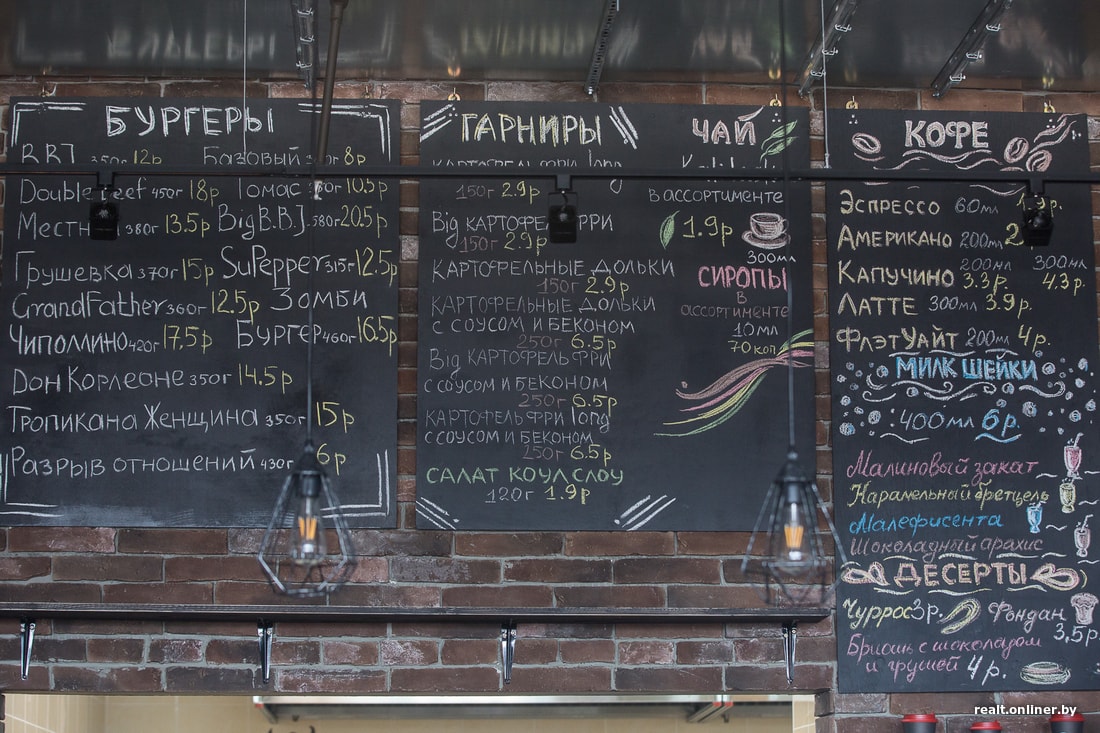 БУРГЕРЫ
350г 12р Базовый 8р
450г 18р Томас 10.5р
380г 13.5р Big B.B.J. 580г 20.5р
Грушевка 370г 15р SuPepper 315г 12.5р
GrandFather 360г 12.5р Зомби
Чиполлино 420г 17,5р Бургер 460г 16.5р
Дон Корлеоне 350г 14.5р
Тропикана Женщина 350г 15р
Разрыв отношений 430г
ГАРНИРЫ
КАРТОФЕЛЬ ФРИ long
150г 2.9р
Big КАРТОФЕЛЬ ФРИ
150г 2.9р
КАРТОФЕЛЬНЫЕ ДОЛЬКИ
150г 2.9р
КАРТОФЕЛЬНЫЕ ДОЛЬКИ
С СОУСОМ И БЕКОНОМ
250г 6.5р
Big КАРТОФЕЛЬ ФРИ
С СОУСОМ И БЕКОНОМ
250г 6.5р
КАРТОФЕЛЬ ФРИ long
С СОУСОМ И БЕКОНОМ
250г 6.5р
САЛАТ КОУЛ СЛОУ
120г 1.9р
ЧАЙ
в ассортименте
1.9р
300мл
СИРОПЫ
в
ассортименте
10 мл
70 коп
КОФЕ
Эспрессо 60мл
Американо 200мл
200мл 300мл
Капучино 3.3р. 4.3р.
Латте 300мл 3.9р.
Флэт Уайт 200мл 4р.
МИЛК ШЕЙКИ
400мл 6р.
Малиновый закат
Карамельный бретцель
Малефисента
Шоколадный арахис
ДЕСЕРТЫ
Чуррос 3р. Фондан
3,5р.
Бриошь с шоколадом
и грушей 4р.
realt.onliner.by